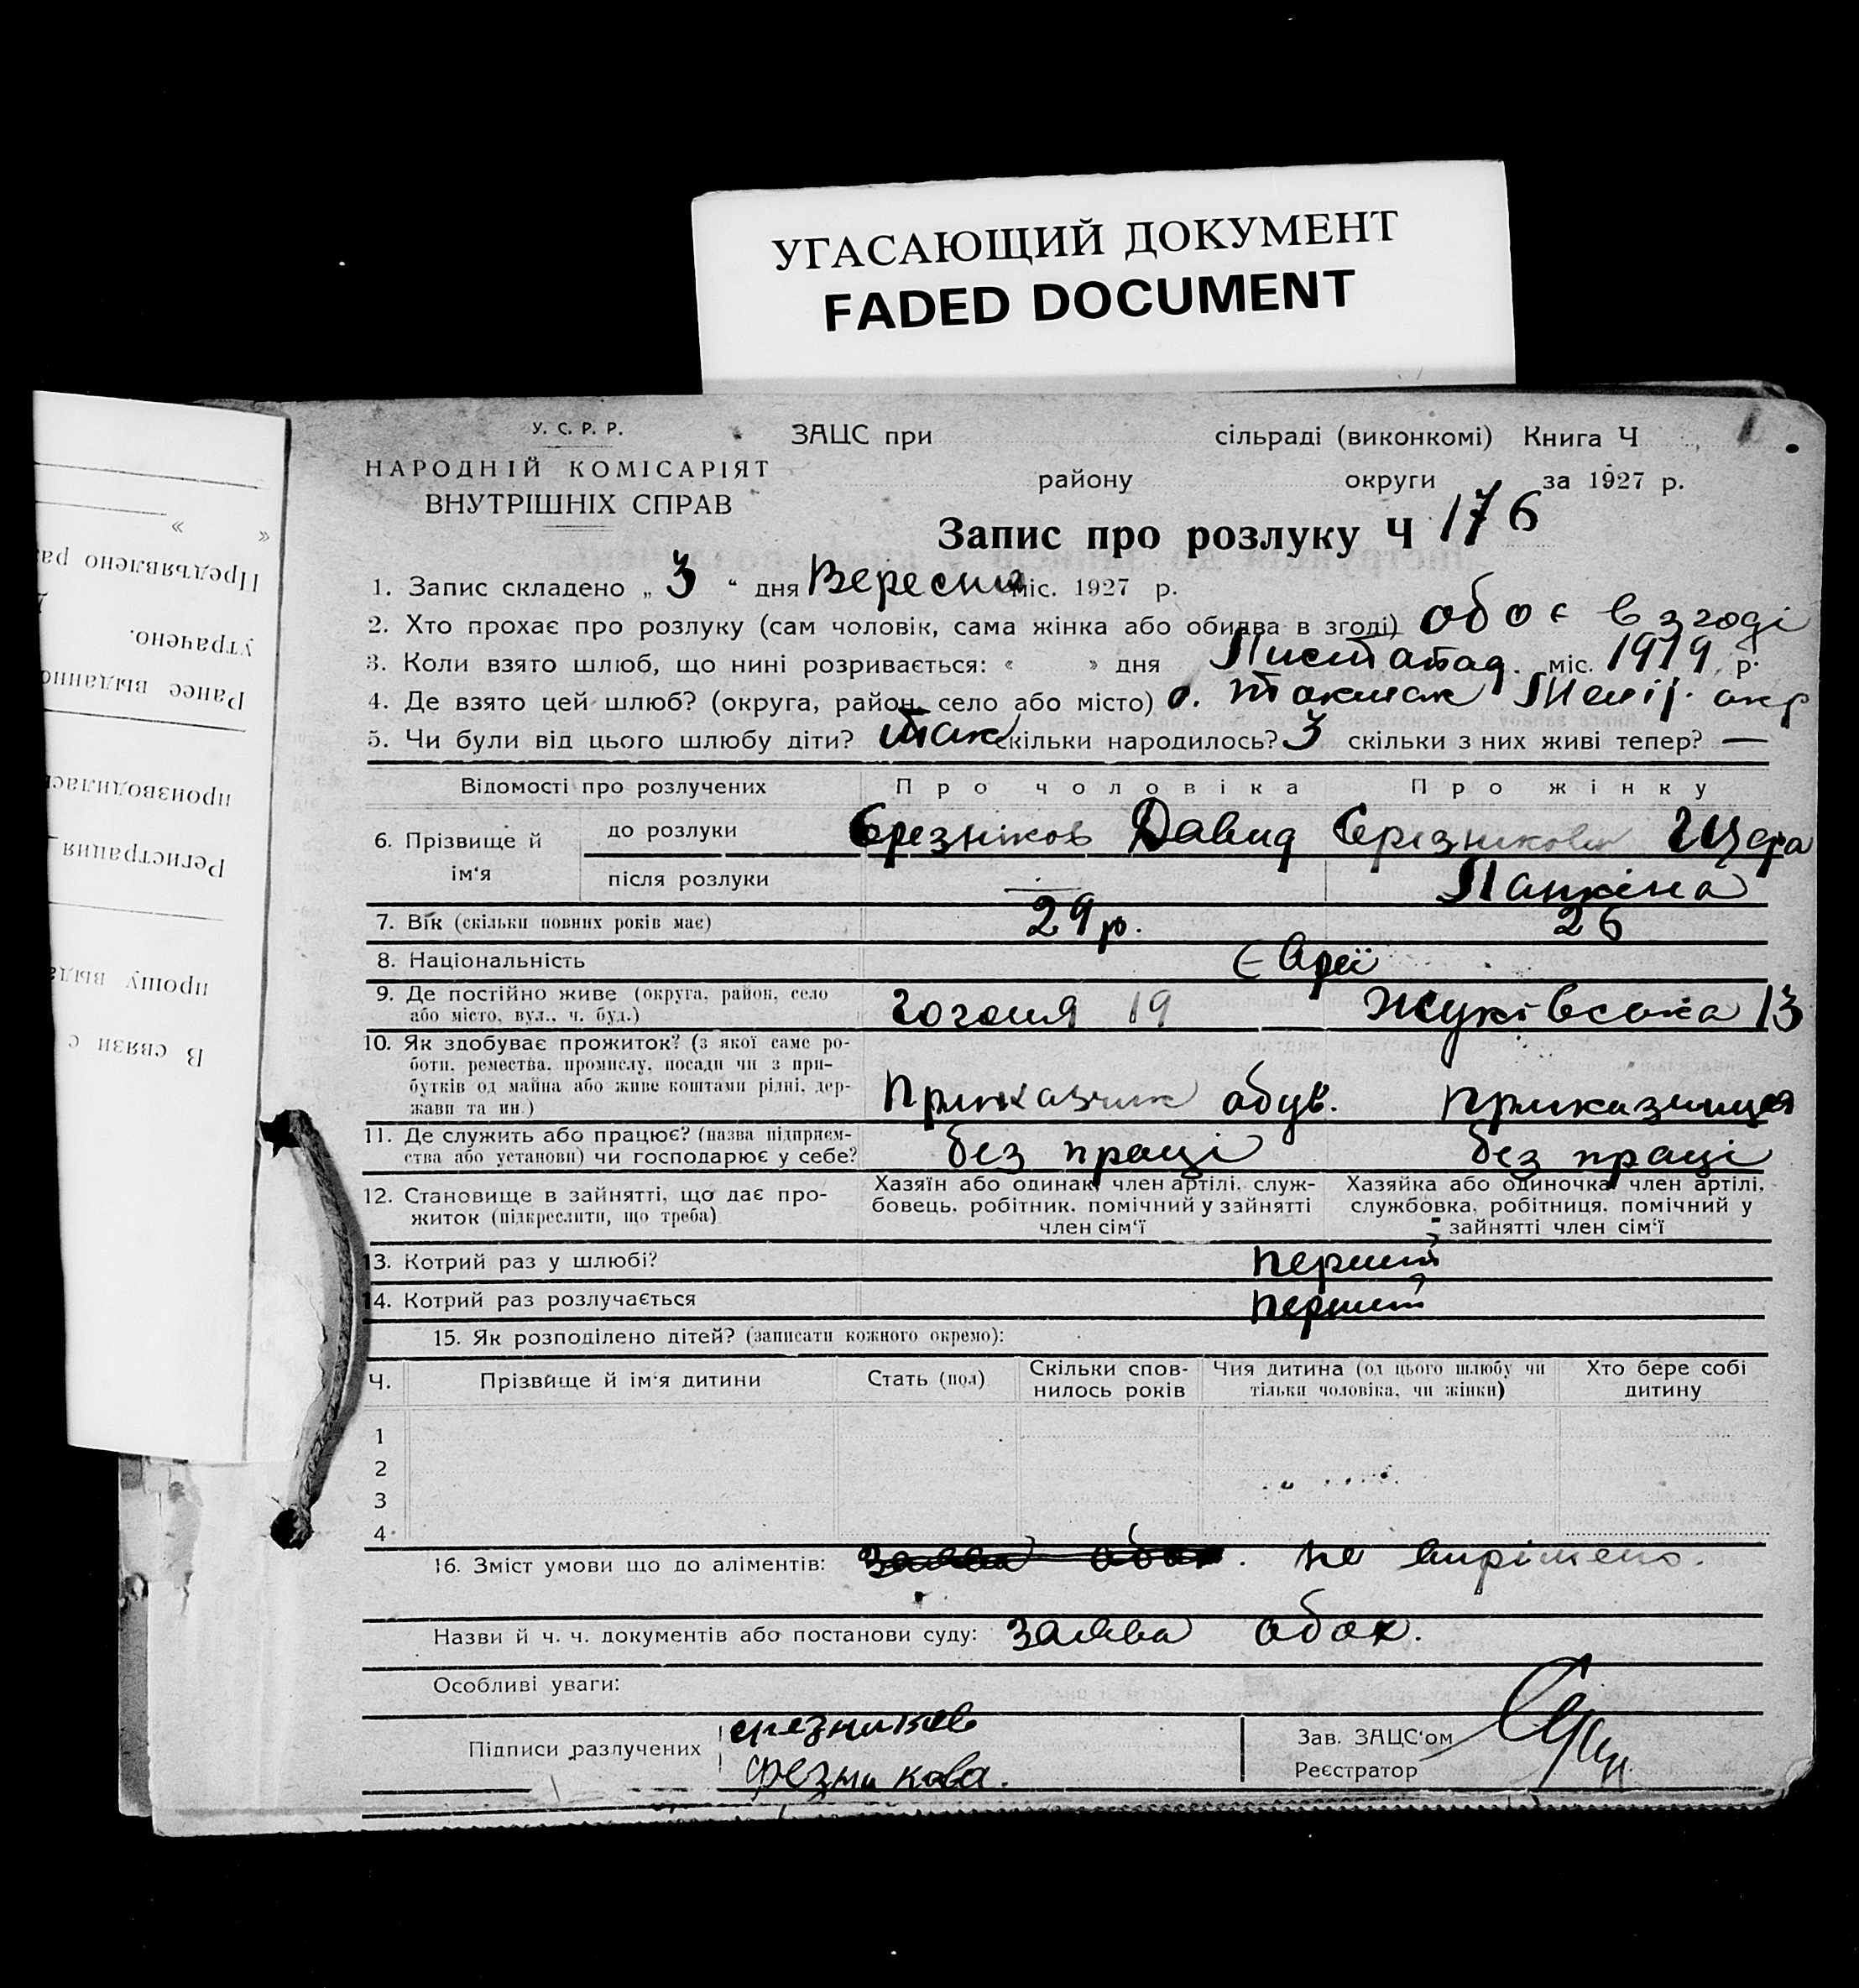 УГАСАЮЩИЙ ДОКУМЕНТ
FADED DOCUMENT
У. С. Р. Р.
НАРОДНІЙ КОМІСАРІЯТ
ВНУТРІШНІХ СПРАВ
ЗАЦС при сільраді (виконкомі) Книга Ч
району округи за 1927 р.
Запис про розлуку Ч 176
1. Запис складено „ 3 “ дня Вересня міс. 1927 р.
2. Хто прохає про розлуку (сам чоловік, сама жінка або обидва в згоді) обоє в згоді
3. Коли взято шлюб, що нині розривається: « » дня Листопад міс. 1919 р.
4. Де взято цей шлюб? (округа, район, село або місто) с. Токмак Меліт. окр
5. Чи були від цього шлюбу діти? так скільки народилось? 3 скільки з них живі тепер? —
Відомості про розлучених
Про чоловіка
Про жінку
6. Прізвище й ім'я
до розлуки
Давид
після розлуки
—
Лапкіна
7. Вік (скільки повних років має)
29 р.
26
8. Національність
Євреї
9. Де постійно живе (округа, район, село
або місто, вул., ч. буд.)
Гоголя 19
Жуківська 13
10. Як здобуває прожиток? (з якої саме ро-
боти, ремества, промислу, посади чи з при-
бутків од майна або живе коштами рідні, дер-
жави та ин.)
Приказчик обув.
приказчиця
11. Де служить або працює? (назва підприєм-
ства або установи) чи господарює у себе?
без праці
без праці
12. Становище в зайнятті, що дає про-
житок (підкреслити, що треба)
Хазяїн або одинак, член артілі, служ-
бовець, робітник, помічний у зайнятті
член сім'ї
Хазяйка або одиночка, член артілі,
службовка, робітниця, помічний у
зайнятті член сім'ї
13. Котрий раз у шлюбі?
перший
14. Котрий раз розлучається
перший
15. Як розподілено дітей? (записати кожного окремо):
Ч.
Прізвище й ім'я дитини
Стать (пол)
Скільки спов-
нилось років
Чия дитина (од цього шлюбу чи
тільки чоловіка, чи жінки)
Хто бере собі
дитину
1
2
3
4
16. Зміст умови що до аліментів: Заява обох. не вирішено.
Назви й ч. ч. документів або постанови суду: заява обох.
Особливі уваги:
Підписи розлучених
Зав. ЗАЦС'ом
Реєстратор
Предъявлено
утрачено.
Ранее
Регистрация
прошу
В связи с